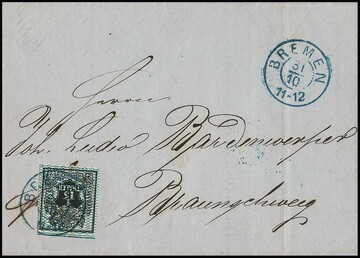 BREMEN
31
10
11-12
Herrn
Joh. Ludw. Bardenwerper
Braunschweig
THALER